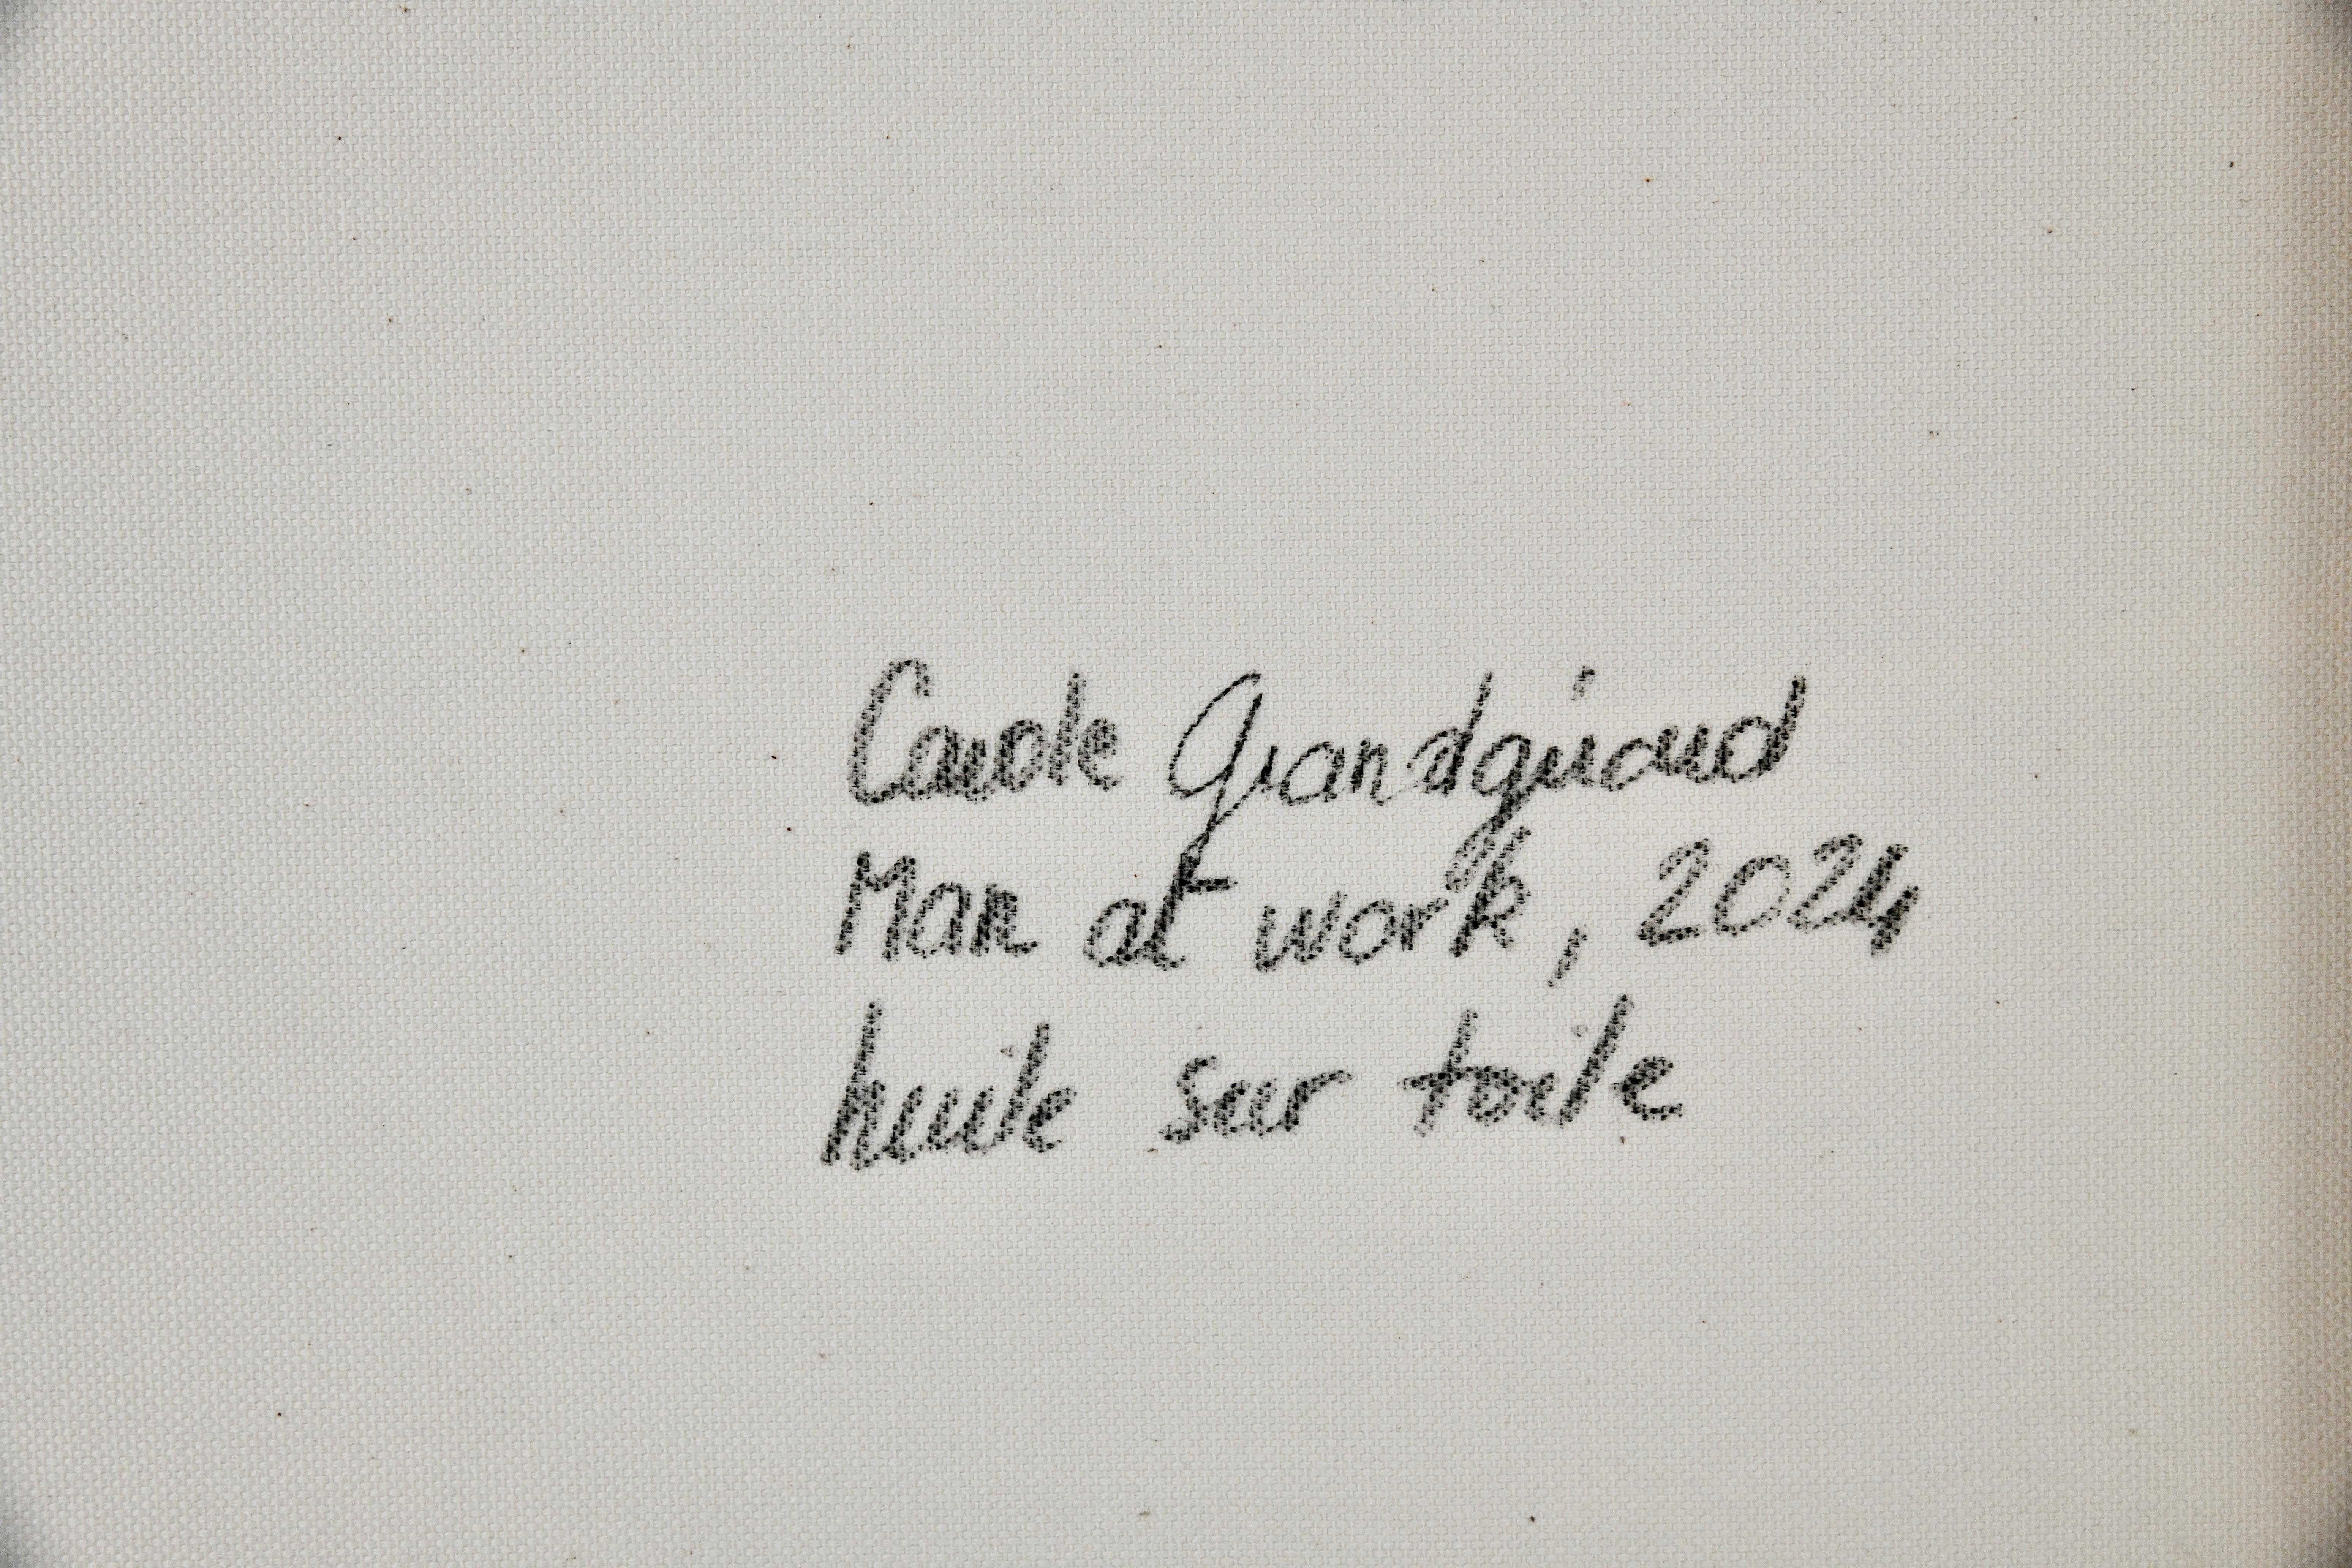 Carole Grandgirard
Man at work, 2024
huile sur toile